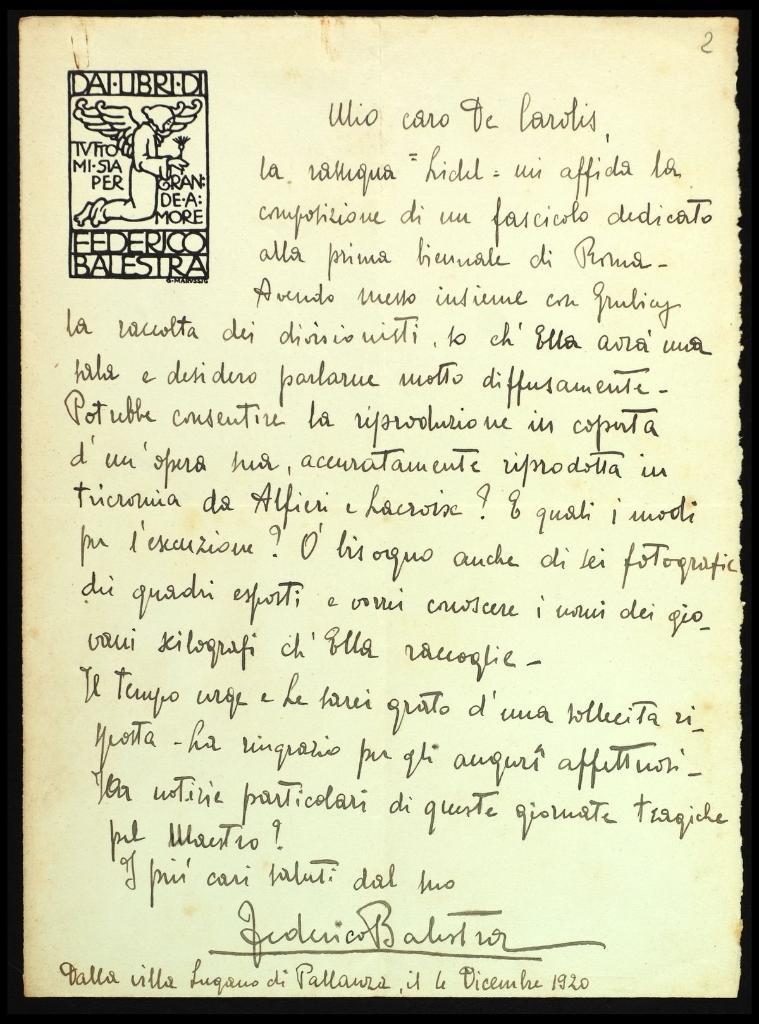 2
DAI·LIBRI·DI
TVTTO
MI·SIA
PER
GRAN:
DE·A:
MORE
FEDERICO
BALESTRA
G·MARUSSIG
Mio caro De Carolis,
la rassegna "Lidel" mi affida la
composizione di un fascicolo dedicato
alla prima biennale di Roma -
Avendo messo insieme con Grubicy
la raccolta dei divisionisti, so ch'Ella avrà una
sala e desidero parlarne molto diffusamente -
Potrebbe consentire la riproduzione in coperta
d'un'opera sua, accuratamente riprodotta in
tricromia da Alfieri e Lacroix? E quali i modi
per l'esecuzione? O' bisogno anche di sei fotografie
dei quadri esposti e vorrei conoscere i nomi dei gio-
vani xilografi ch'Ella raccoglie -
Il tempo urge e Le sarei grato d'una sollecita ri-
sposta - La ringrazio per gli augurî affettuosi -
Ha notizie particolari di queste giornate tragiche
pel Maestro?
I più cari saluti dal suo
Federico Balestra
Dalla villa Lugano di Pallanza, il 6 Dicembre 1920